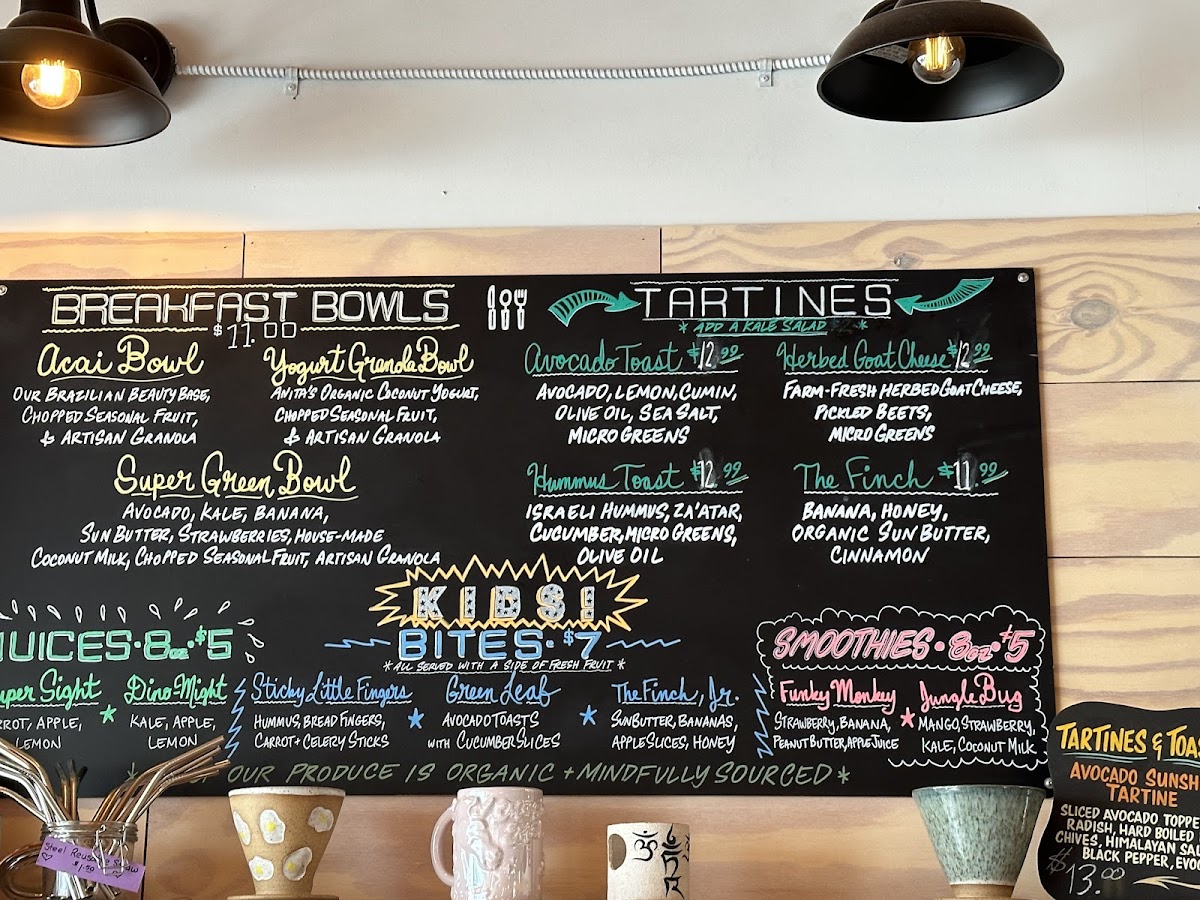 BREAKFAST BOWLS
$11.00
Acai Bowl
OUR BRAZILIAN BEAUTY BASE,
CHOPPED SEASONAL FRUIT,
& ARTISAN GRANOLA
Yogurt Granola Bowl
ANITA'S ORGANIC COCONUT YOGURT,
CHOPPED SEASONAL FRUIT,
& ARTISAN GRANOLA
Super Green Bowl
AVOCADO, KALE, BANANA,
SUN BUTTER, STRAWBERRIES, HOUSE-MADE
COCONUT MILK, CHOPPED SEASONAL FRUIT, ARTISAN GRANOLA
TARTINES
*ADD A KALE SALAD
Avocado Toast $12.99
AVOCADO, LEMON, CUMIN,
OLIVE OIL, SEA SALT,
MICRO GREENS
Herbed Goat Cheese $12.99
FARM-FRESH HERBED GOAT CHEESE,
PICKLED BEETS,
MICRO GREENS
Hummus Toast $12.99
ISRAELI HUMMUS, ZA'ATAR,
CUCUMBER, MICRO GREENS,
OLIVE OIL
The Finch $11.99
BANANA, HONEY,
ORGANIC SUN BUTTER,
CINNAMON
KIDS!
JUICES·8oz·$5
Super Sight
CARROT, APPLE,
LEMON
Dino-Might
KALE, APPLE,
LEMON
BITES·$7
*ALL SERVED WITH A SIDE OF FRESH FRUIT*
Sticky Little Fingers
HUMMUS, BREAD FINGERS,
CARROT + CELERY STICKS
Green Leaf
AVOCADO TOASTS
WITH CUCUMBER SLICES
The Finch, Jr.
SUNBUTTER, BANANAS,
APPLE SLICES, HONEY
SMOOTHIES·8oz·$5
Funky Monkey
STRAWBERRY, BANANA,
PEANUT BUTTER, APPLE JUICE
Jungle Bug
MANGO, STRAWBERRY,
KALE, COCONUT MILK
OUR PRODUCE IS ORGANIC + MINDFULLY SOURCED*
Steel Reusable Straw
$1.50
ॐ
TARTINES & TOAS
AVOCADO SUNSH
TARTINE
SLICED AVOCADO TOPPE
RADISH, HARD BOILED
CHIVES, HIMALAYAN SAL
BLACK PEPPER, EVO
$13.00